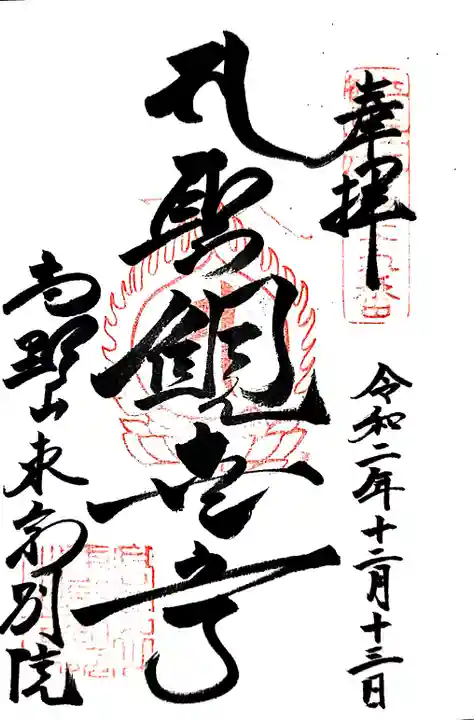 奉拝
令和二年十二月十三日
聖観世音
高野山東京別院